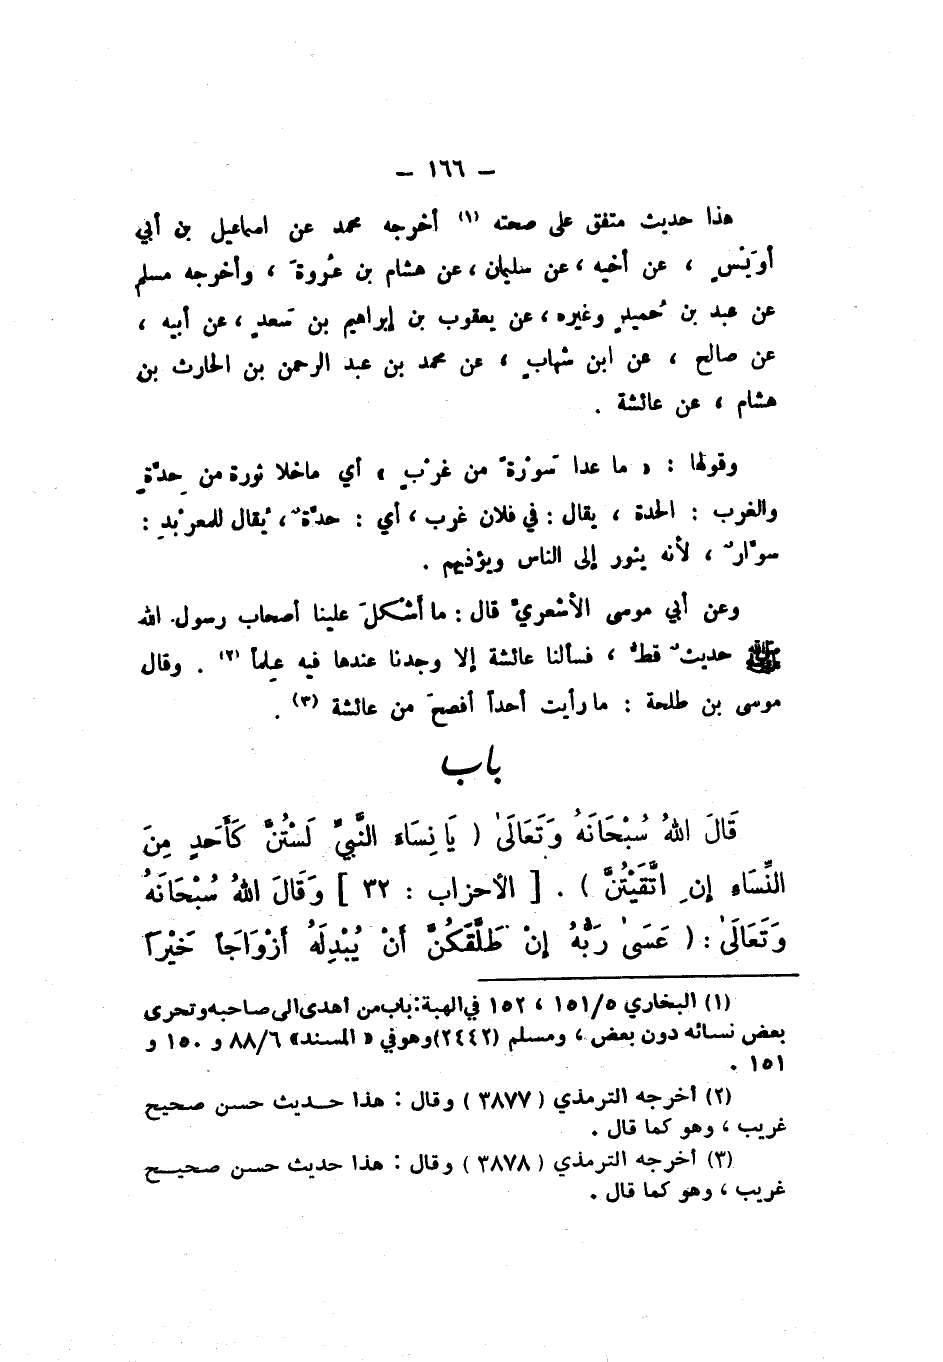 — ١٦٦ —
هذا حديث متفق على صحته (١) أخرجه محمد عن اسماعيل بن أبي
أوَيْسٍ ، عن أخيه ، عن سليمان ، عن هشام بن عُروةَ ، وأخرجه مسلم
عن عبد بن حُميدٍ وغيره ، عن يعقوب بن إبراهيم بن سَعدٍ ، عن أبيه ،
عن صالح ، عن ابن شهابٍ ، عن محمد بن عبد الرحمن بن الحارث بن
هشام ، عن عائشة .
وقولها : « ما عدا سَوْرَةً من غرْبٍ » أي ماخلا ثورة من حِدَّةٍ
والغرب : الحدة ، يقال : في فلان غرب ، أي : حدَّةٌ ، يُقال للمعرْبدِ :
سوَّارٌ ، لأنه يثور إلى الناس ويؤذيهم .
وعن أبي موسى الأشعريّ قال : ما أَشْكلَ علينا أصحاب رسول الله
ﷺ حديثٌ قطُّ ، فسألنا عائشة إلا وجدنا عندها فيه عِلماً (٢) . وقال
موسى بن طلحة : ما رأيت أحداً أفصحَ من عائشة (٣) .
باب
قَالَ اللهُ سُبْحَانَهُ وَتَعَالَىٰ ( يَا نِسَاءَ النَّبِيِّ لَسْتُنَّ كَأَحَدٍ مِنَ
النِّسَاءِ إِنِ اتَّقَيْتُنَّ ) . [ الأحزاب : ٣٢ ] وَقَالَ اللهُ سُبْحَانَهُ
وَتَعَالَىٰ : ( عَسَىٰ رَبُّهُ إِنْ طَلَّقَكُنَّ أَنْ يُبْدِلَهُ أَزْوَاجَاً خَيْرَاً
(١) البخاري ١٥١/٥ ، ١٥٢ في الهبة : باب من أهدى الى صاحبه وتحرى
بعض نسائه دون بعض ، ومسلم (٢٤٤٢) وهو في « المسند » ٨٨/٦ و ١٥٠ و
١٥١ .
(٢) أخرجه الترمذي ( ٣٨٧٧ ) وقال : هذا حديث حسن صحيح
غريب ، وهو كما قال .
(٣) أخرجه الترمذي ( ٣٨٧٨ ) وقال : هذا حديث حسن صحيح
غريب ، وهو كما قال .